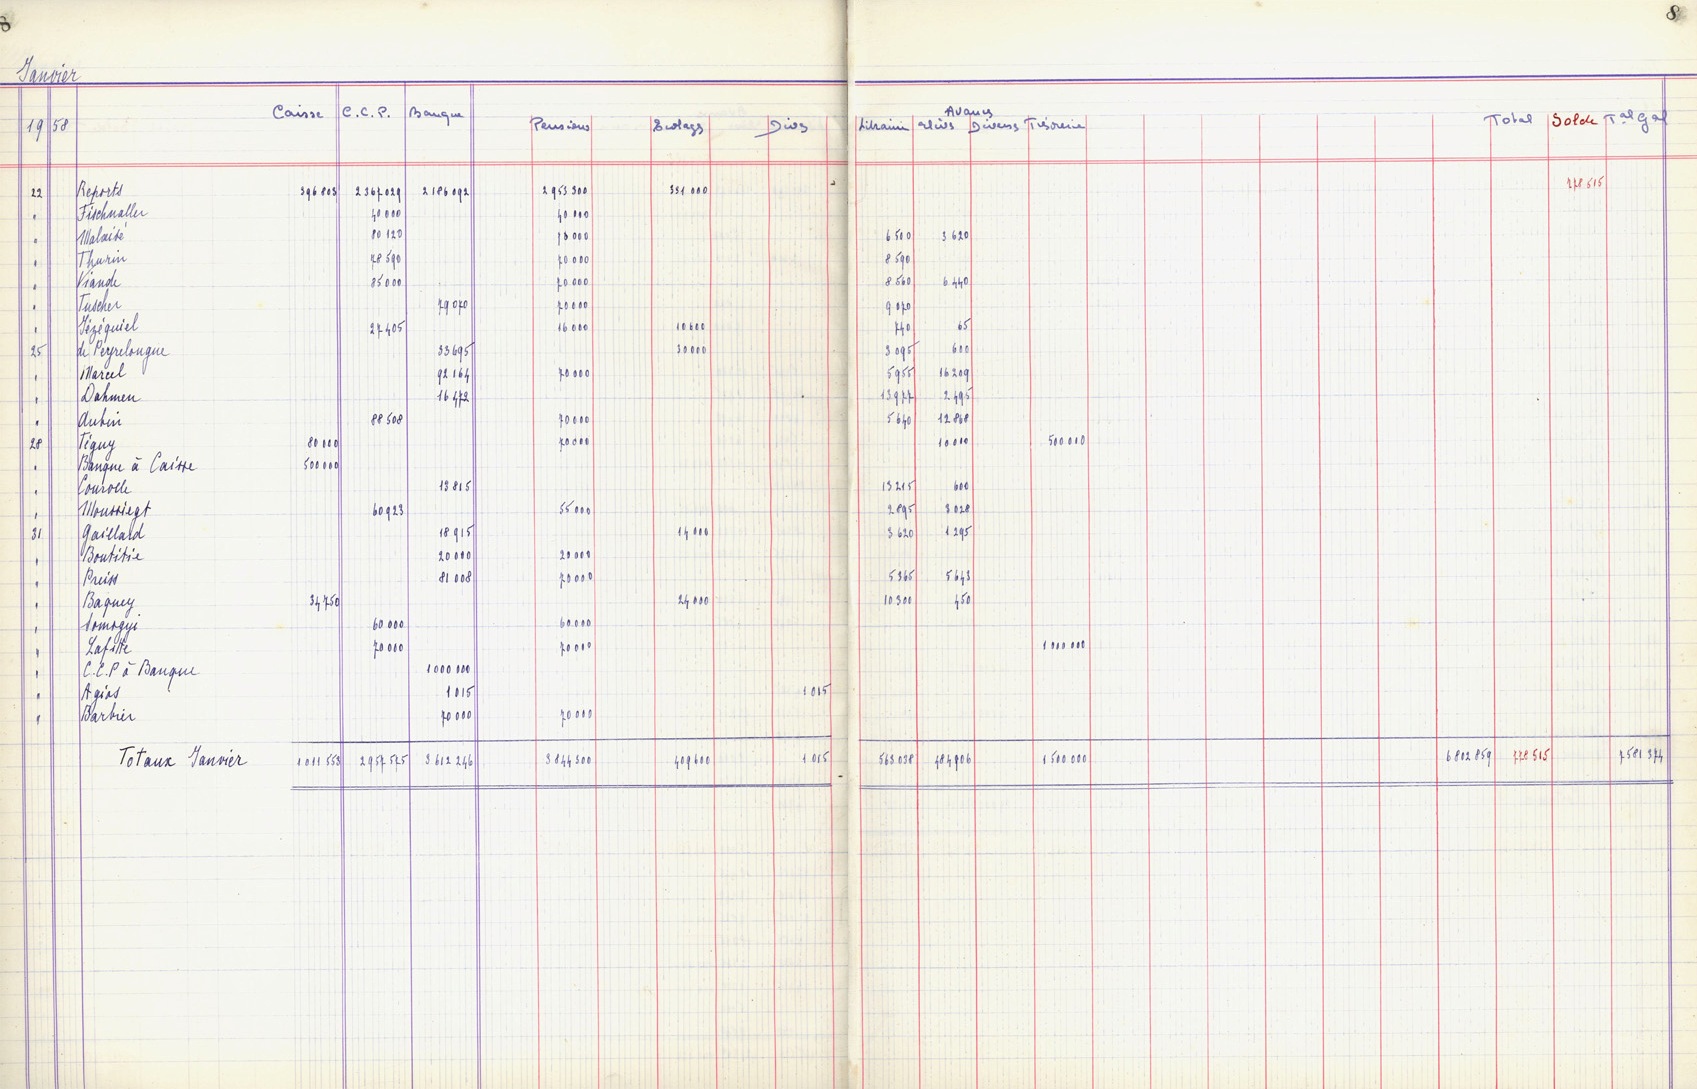 8 8
Janvier
Caisse C.C.P. Banque Avances
19 58 Pensions Ecolages Divs Librairie Elèves Divers Trésorerie Total Solde Tal Gal
22 Reports 396 803 2 367 029 2 186 092 2 953 300 351 000 778 515
" Fischnaller 40 000 40 000
" Malaisé 80 120 70 000 6 500 3 620
" Thurin 78 590 70 000 8 590
" Viande 85 000 70 000 8 560 6 440
" Tuscher 79 070 70 000 9 070
" Jézéquiel 27 405 16 000 10 600 740 65
25 de Peyrelongue 33 695 30 000 3 095 600
" Marcel 92 164 70 000 5 955 16 209
" Dahmen 16 472 13 977 2 495
" Aubin 88 508 70 000 5 640 12 868
28 Téguy 80 000 70 000 10 000 500 000
" Banque à Caisse 500 000
" Courole 13 815 13 215 600
" Moussiegt 60 923 55 000 2 895 3 028
31 Gaillard 18 915 14 000 3 620 1 295
" Boutitie 20 000 20 000
" Preiss 81 008 70 000 5 365 5 643
" Baquey 34 750 24 000 10 300 450
" Somogyi 60 000 60 000
" Lafitte 70 000 70 000 1 000 000
" C.C.P à Banque 1 000 000
" Agios 1 015 1 015
" Barbier 70 000 70 000
Totaux Janvier 1 011 553 2 957 575 3 612 246 3 844 300 409 600 1 015 563 038 484 906 1 500 000 6 802 859 778 515 7 581 374